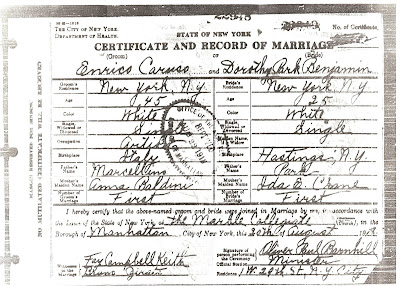 THE CITY OF NEW YORK.
DEPARTMENT OF HEALTH.
STATE OF NEW YORK
No. of Certificate
CERTIFICATE AND RECORD OF MARRIAGE
(Groom) (Bride)
Enrico Caruso and Dorothy Park Benjamin
Groom's Residence New York, N.Y. Bride's Residence New York, N.Y.
Age 45 Age 25
Color White Color White
Single, Widowed or Divorced Single, Widowed or Divorced Single
Occupation Artist Maiden Name, if a Widow
Birthplace Italy Birthplace Hastings, N.Y.
Father's Name Marcellino Father's Name Park
Mother's Maiden Name Anna Baldini Mother's Maiden Name Ida E. Crane
Number of Groom's Marriage First Number of Bride's Marriage First
I hereby certify that the above-named groom and bride were joined in Marriage by me, in accordance
with the Laws of the State of New York, at The Marble Collegiate
Borough of Manhattan, City of New York, this 20th of August 191
Signature of person performing the Ceremony Oliver Paul Barnhill
Witnesses to the Marriage Fay Campbell Keith Official Station Minister
Bruno Zirato Residence 1 W. 29th St., N.Y. City
NO MUTILATED CERTIFICATE WILL BE